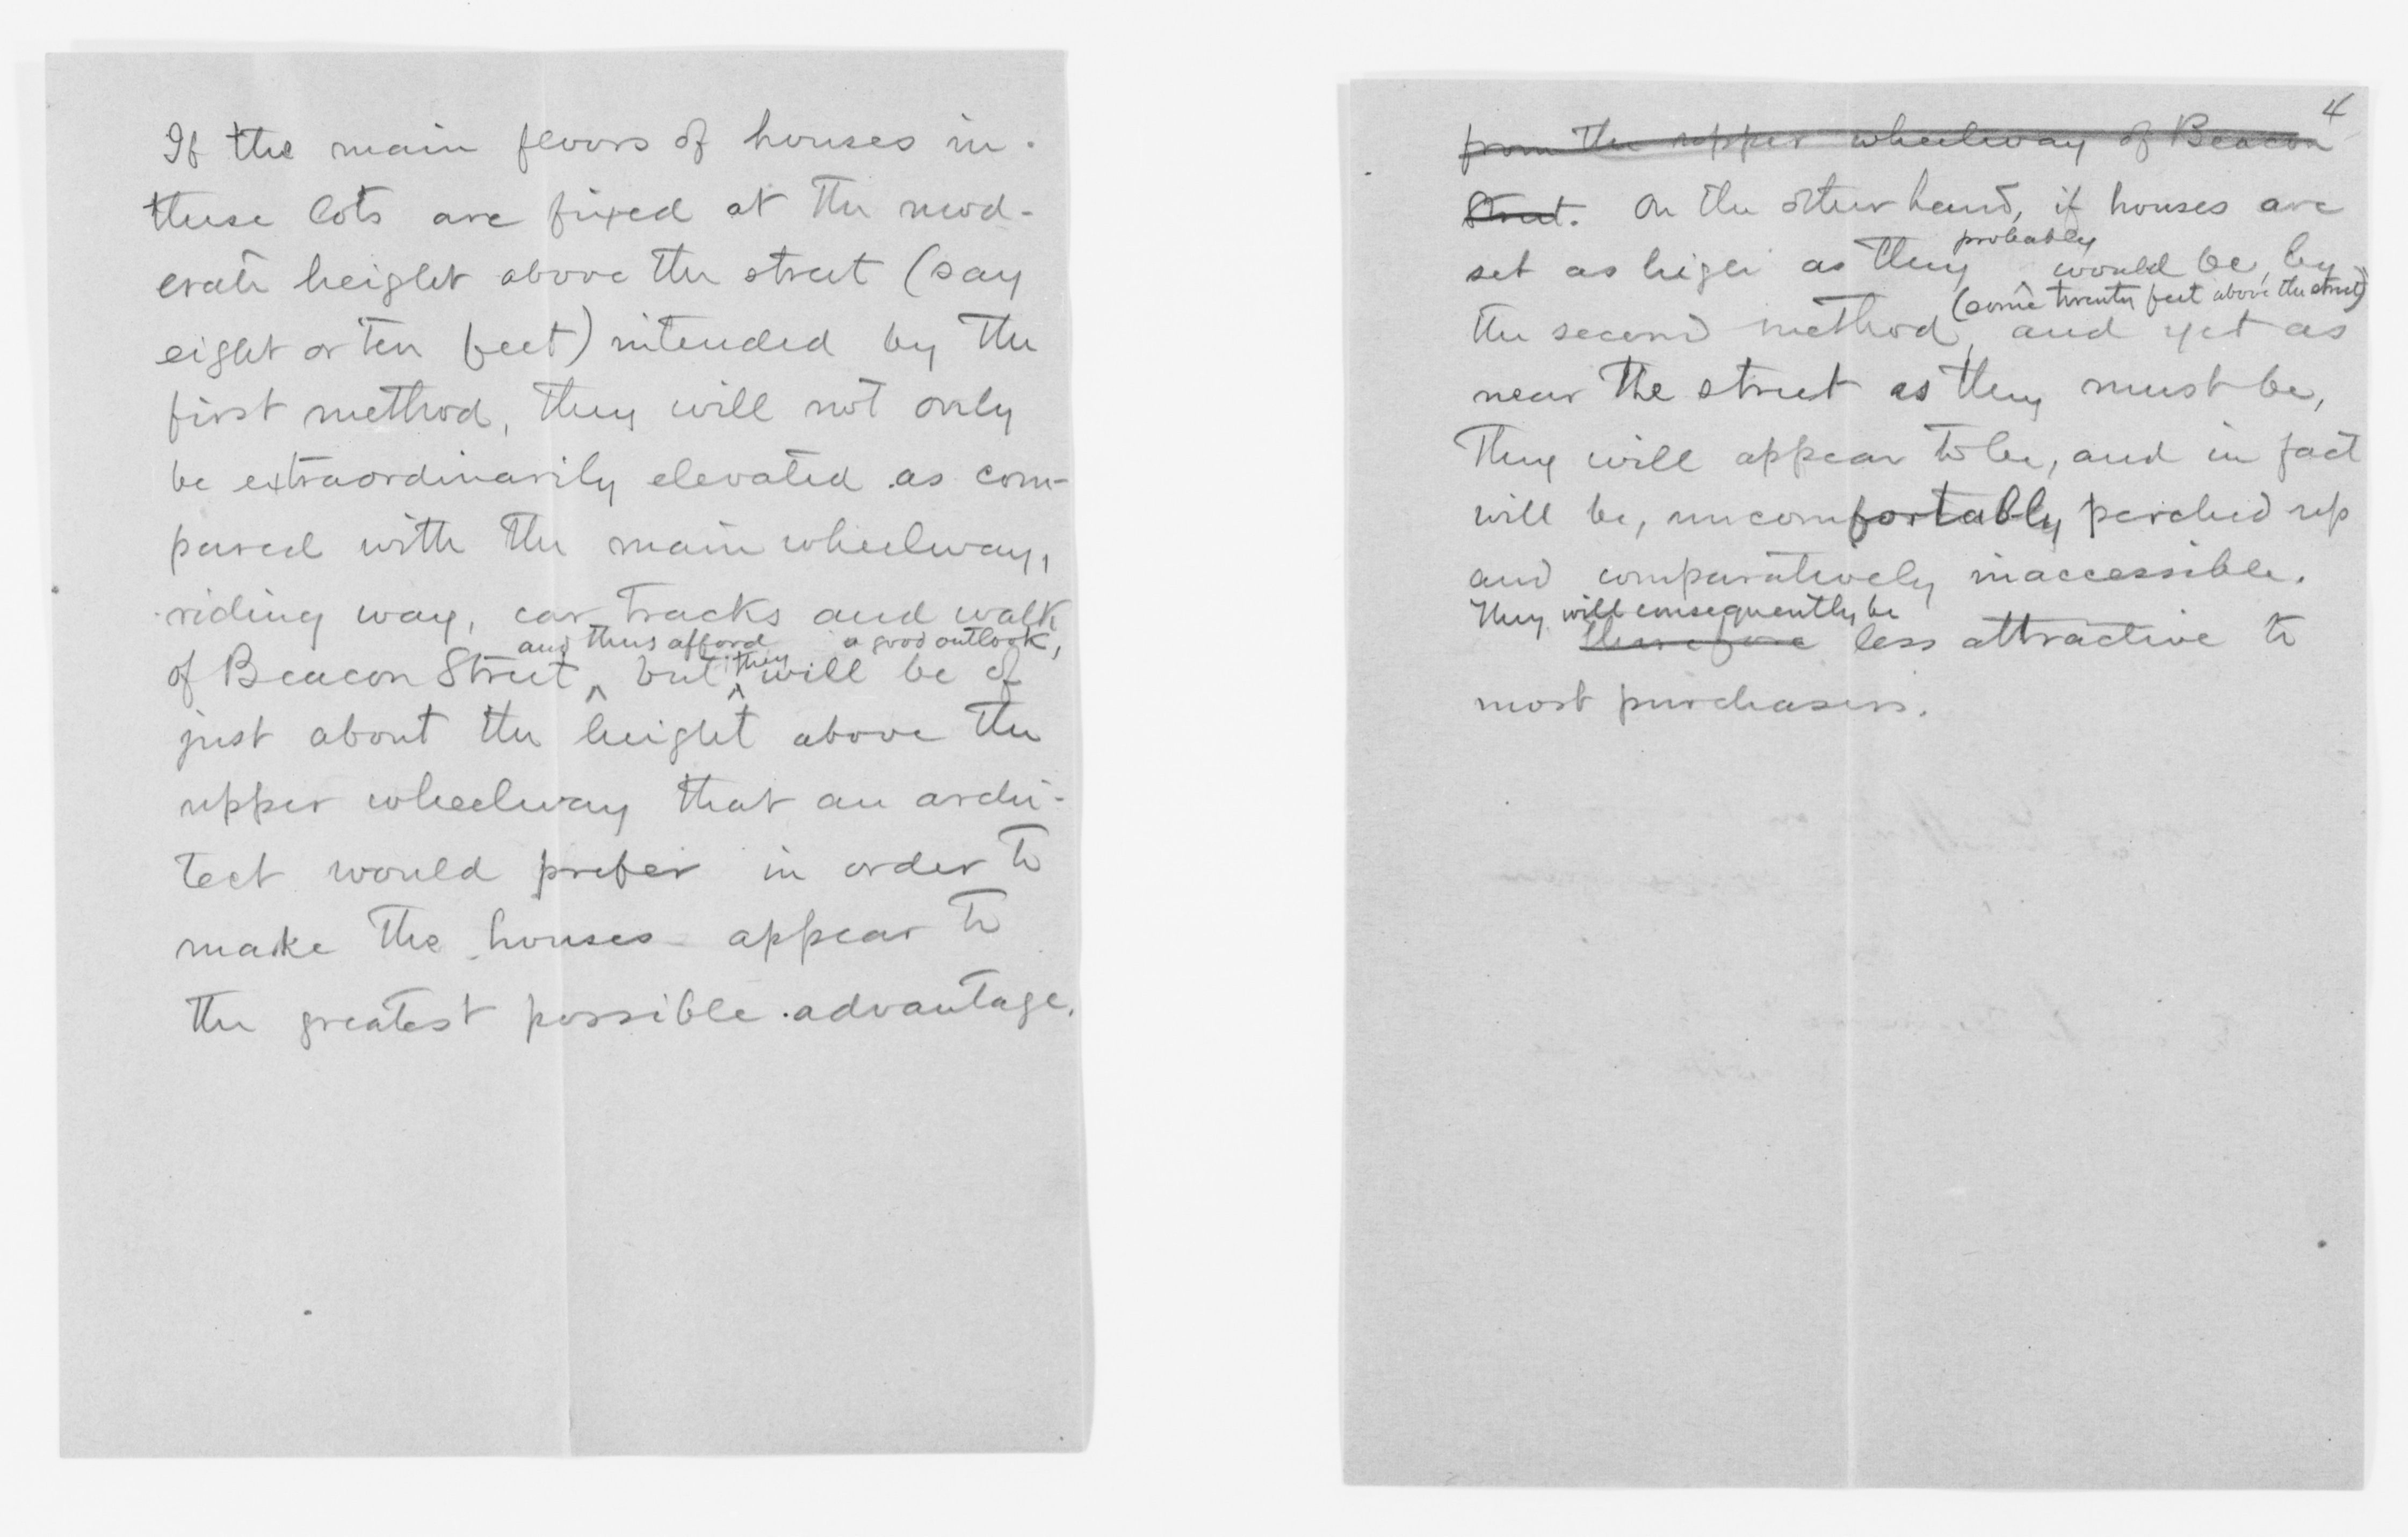 If the main floors of houses in
these lots are fixed at the mod-
erate height above the street (say
eight or ten feet) intended by the
first method, they will not only
be extraordinarily elevated as com-
pared with the main wheelway,
riding way, car tracks and walk
and thus afford a good outlook,
of Beacon Street, but they will be of
just about the height above the
upper wheelway that an archi-
tect would prefer in order to
make the houses appear to
the greatest possible advantage.
4
from the upper wheelway of Beacon
Street. On the other hand, if houses are
probably
set as high as they would be, by
(some twenty feet above the street)
the second method, and yet as
near the street as they must be,
They will appear to be, and in fact
will be, uncomfortably perched up
and comparatively inaccessible.
They will consequently be
therefore less attractive to
most purchasers.